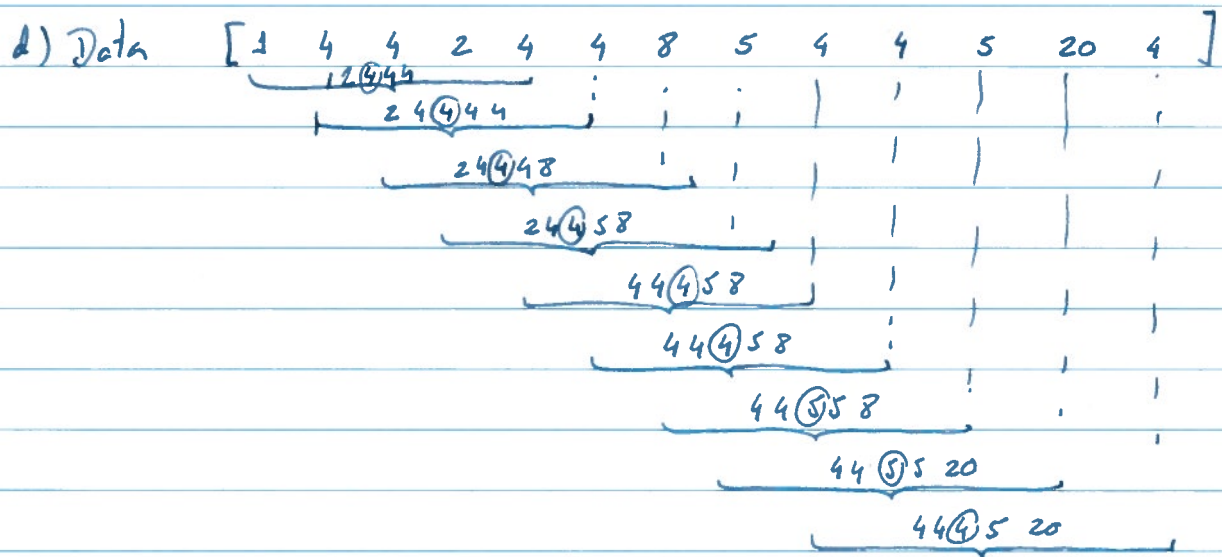 d) Data [1 4 4 2 4 4 8 5 4 4 5 20 4]
1 2 4 4 4
2 4 4 4 4
2 4 4 4 8
2 4 4 5 8
4 4 4 5 8
4 4 4 5 8
4 4 5 5 8
4 4 5 5 20
4 4 4 5 20